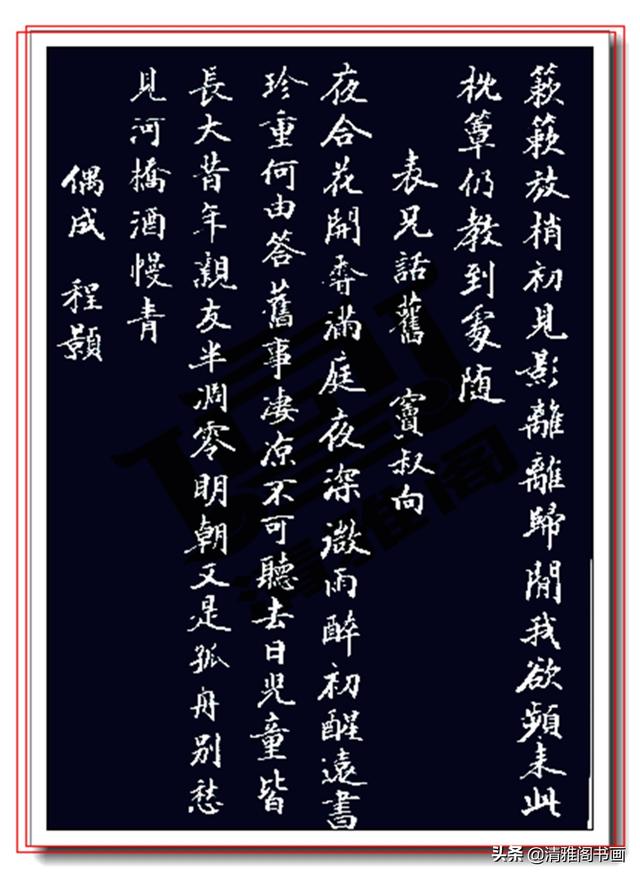 簌簌放梢初見影離離歸閒我欲頻来此
枕簟仍教到處随
表兄話舊 竇叔向
夜合花開香滿庭夜深微雨醉初醒遠書
珍重何由答舊事凄凉不可聽去日兒童皆
長大昔年親友半凋零明朝又是孤舟别愁
見河橋酒幔青
偶成 程顥
清雅阁
头条 @清雅阁书画